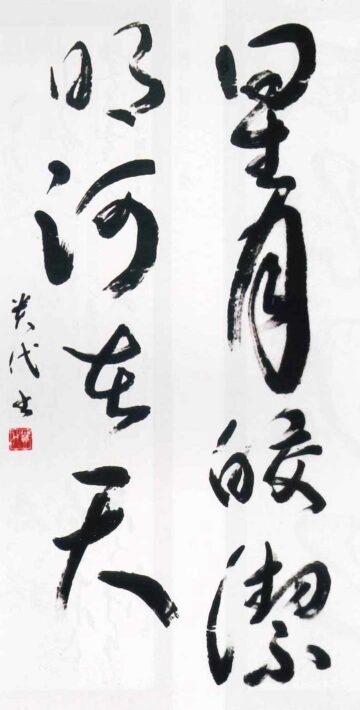 星月皎潔
明河在天
美代书